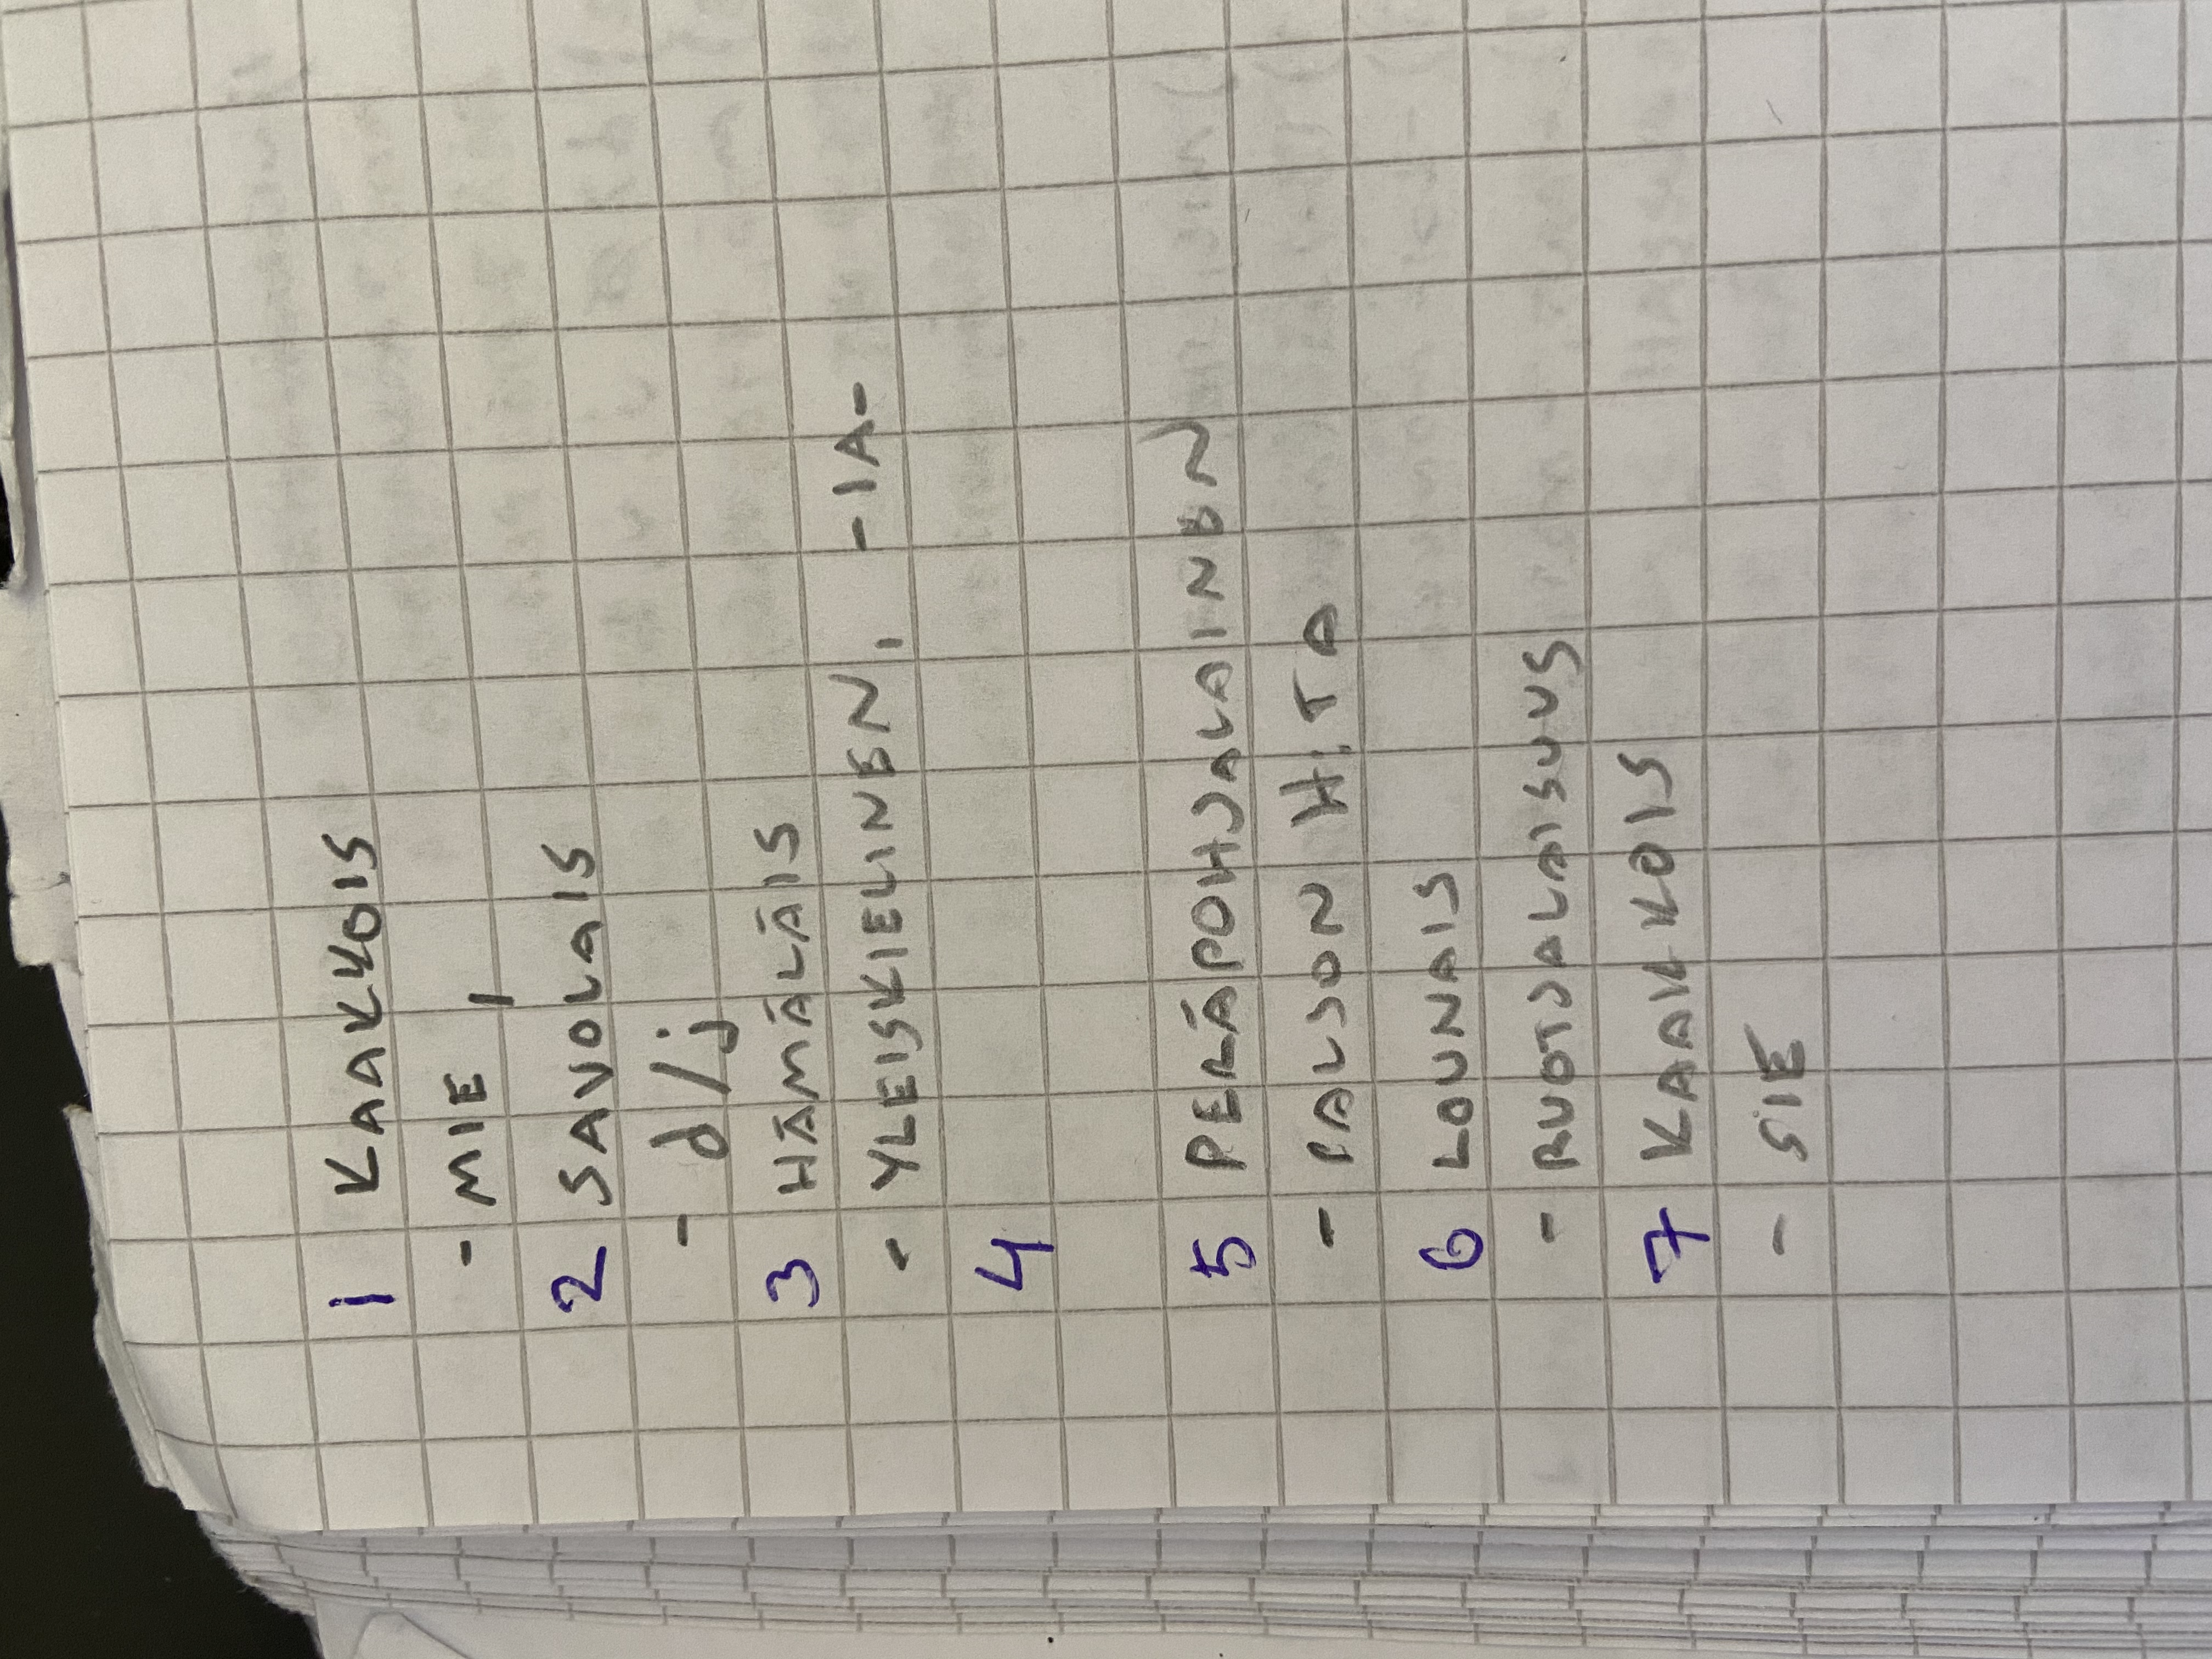 1 KAAKKOIS
- MIE,
2 SAVOLAIS
- d/j
3 HÄMÄLÄIS
- YLEISKIELINEN, -IA-
4
5 PERÄPOHJALAINEN
- PALJON H:TA
6 LOUNAIS
- RUOTSALAISUUS
7 KAAKKOIS
- SIE